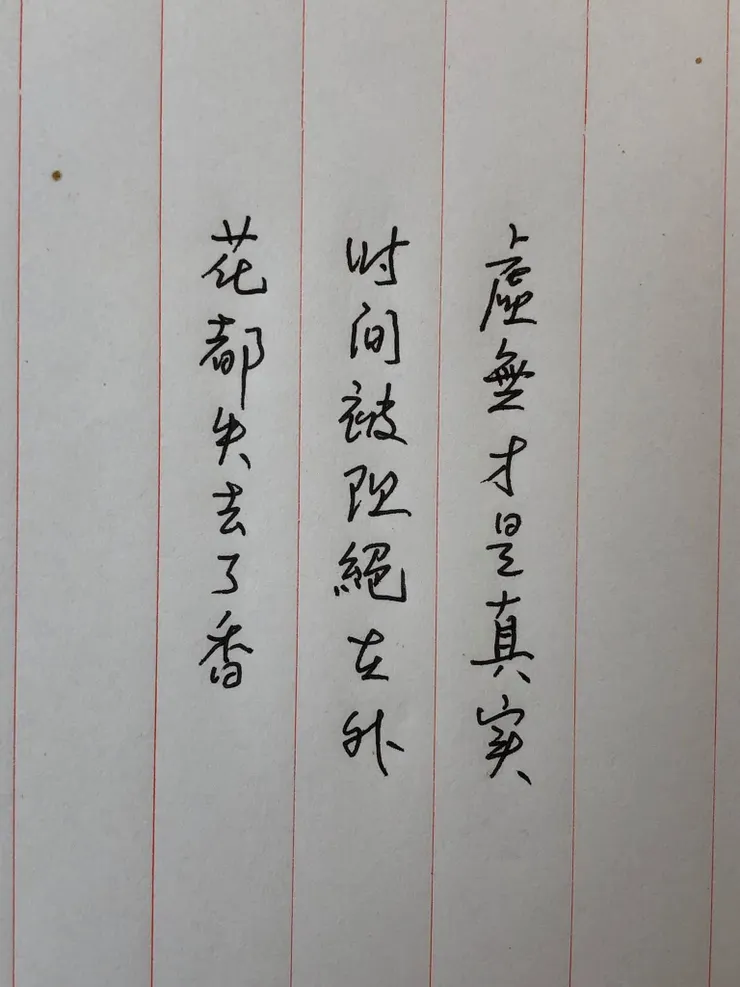 虛無才是真实
时间被阻絕在外
花都失去了香